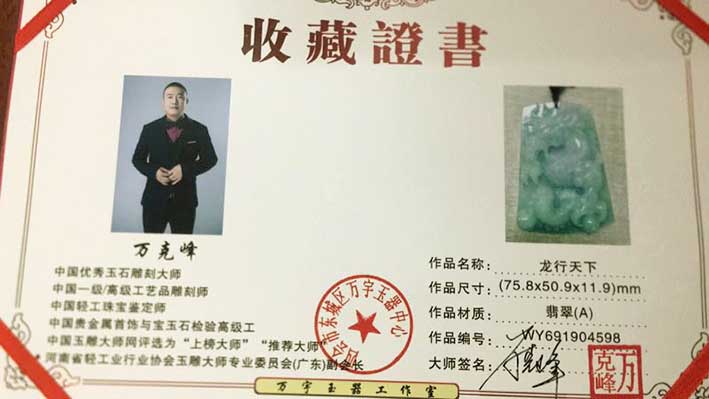 收藏證書
万克峰
中国优秀玉石雕刻大师
中国一级/高级工艺品雕刻师
中国轻工珠宝鉴定师
中国贵金属首饰与宝玉石检验高级工
中国玉雕大师网评选为“上榜大师”“推荐大师”
河南省轻工业行业协会玉雕大师专业委员会(广东)副会长
作品名称: 龙行天下
作品尺寸: (75.8x50.9x11.9)mm
作品材质: 翡翠(A)
作品编号: WY691904598
大师签名:
万克峰
会市东城区万宇玉器中心
万宇玉器工作室